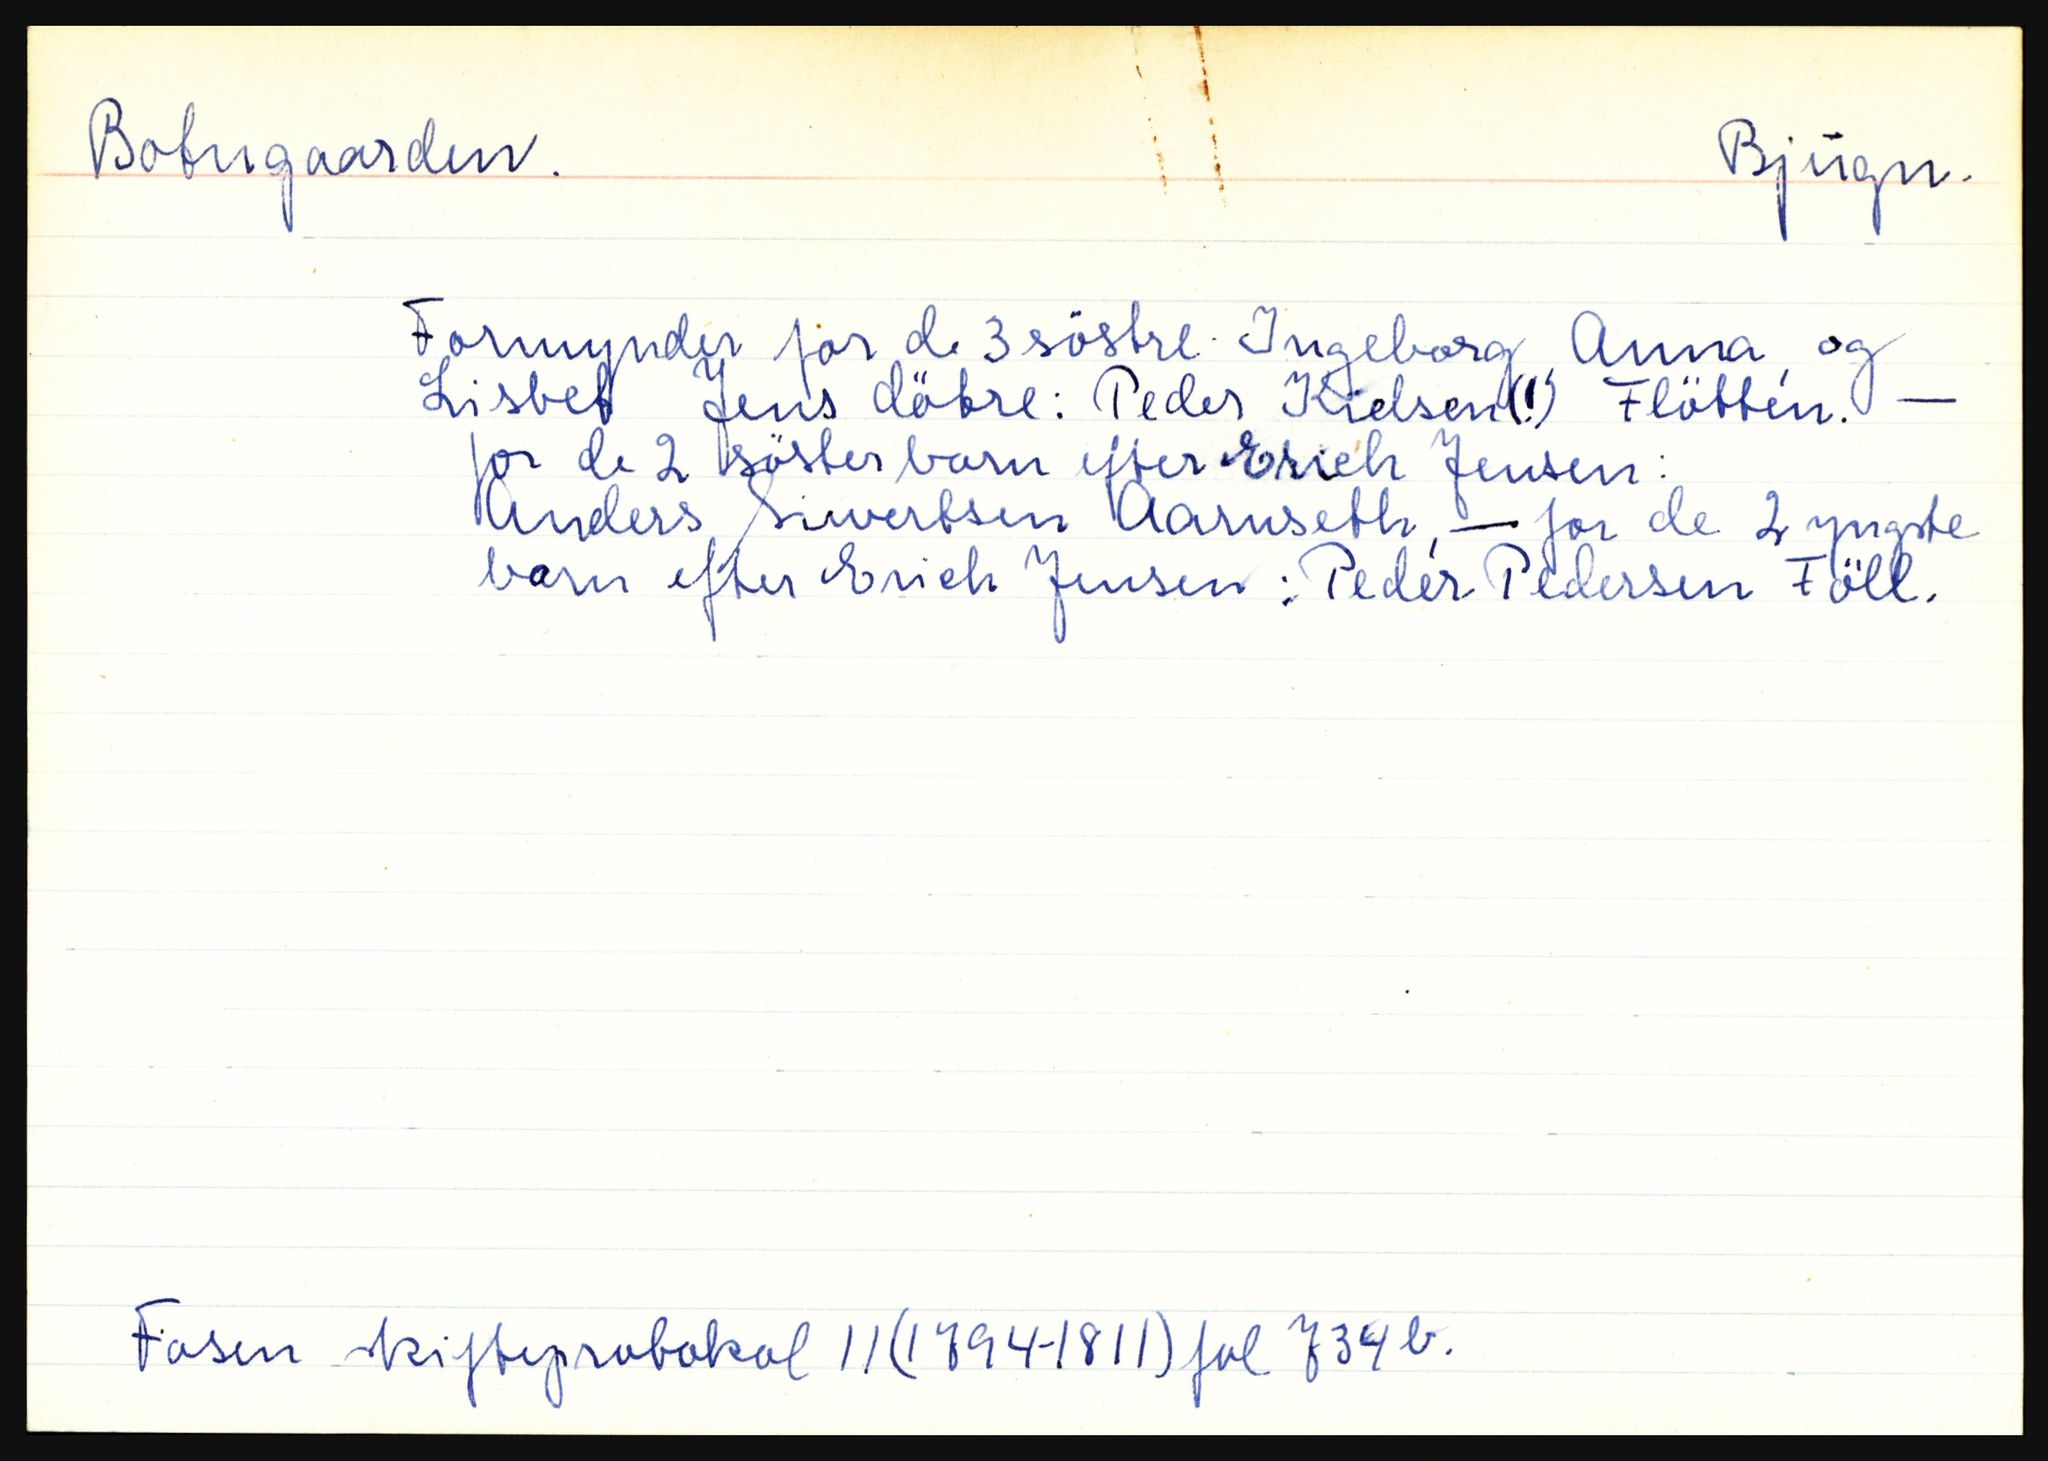 Botngaarden. Bjugn.
Formynder for de 3 söstre Ingeborg, Anna, og
Lisbet Jens dötre: Peder Kielsen(!) Flötten. —
for de 2 söster barn efter Erich Jensen:
Anders Siwertsen Aarnseth, — for de 2 yngste
barn efter Erich Jensen: Peder Pedersen Föll.
Fosen skifteprotokol 11 (1794-1811) fol 734 b.